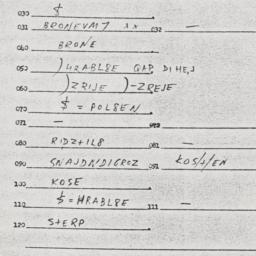 030 $
031 BRONEVMT xx 032 —
040 BRONE
050 )HRABL8E GAP DIHEJ
060 )ZRIJE )-ZREJE
070 $ = POLSEN
071 — 072
080 RIDZ+IL8 081 —
090 SNAJDNDICROZ 091 KOS/+/EN
100 KOSE
110 $ = HRABL8E 111 —
120 S+ERP